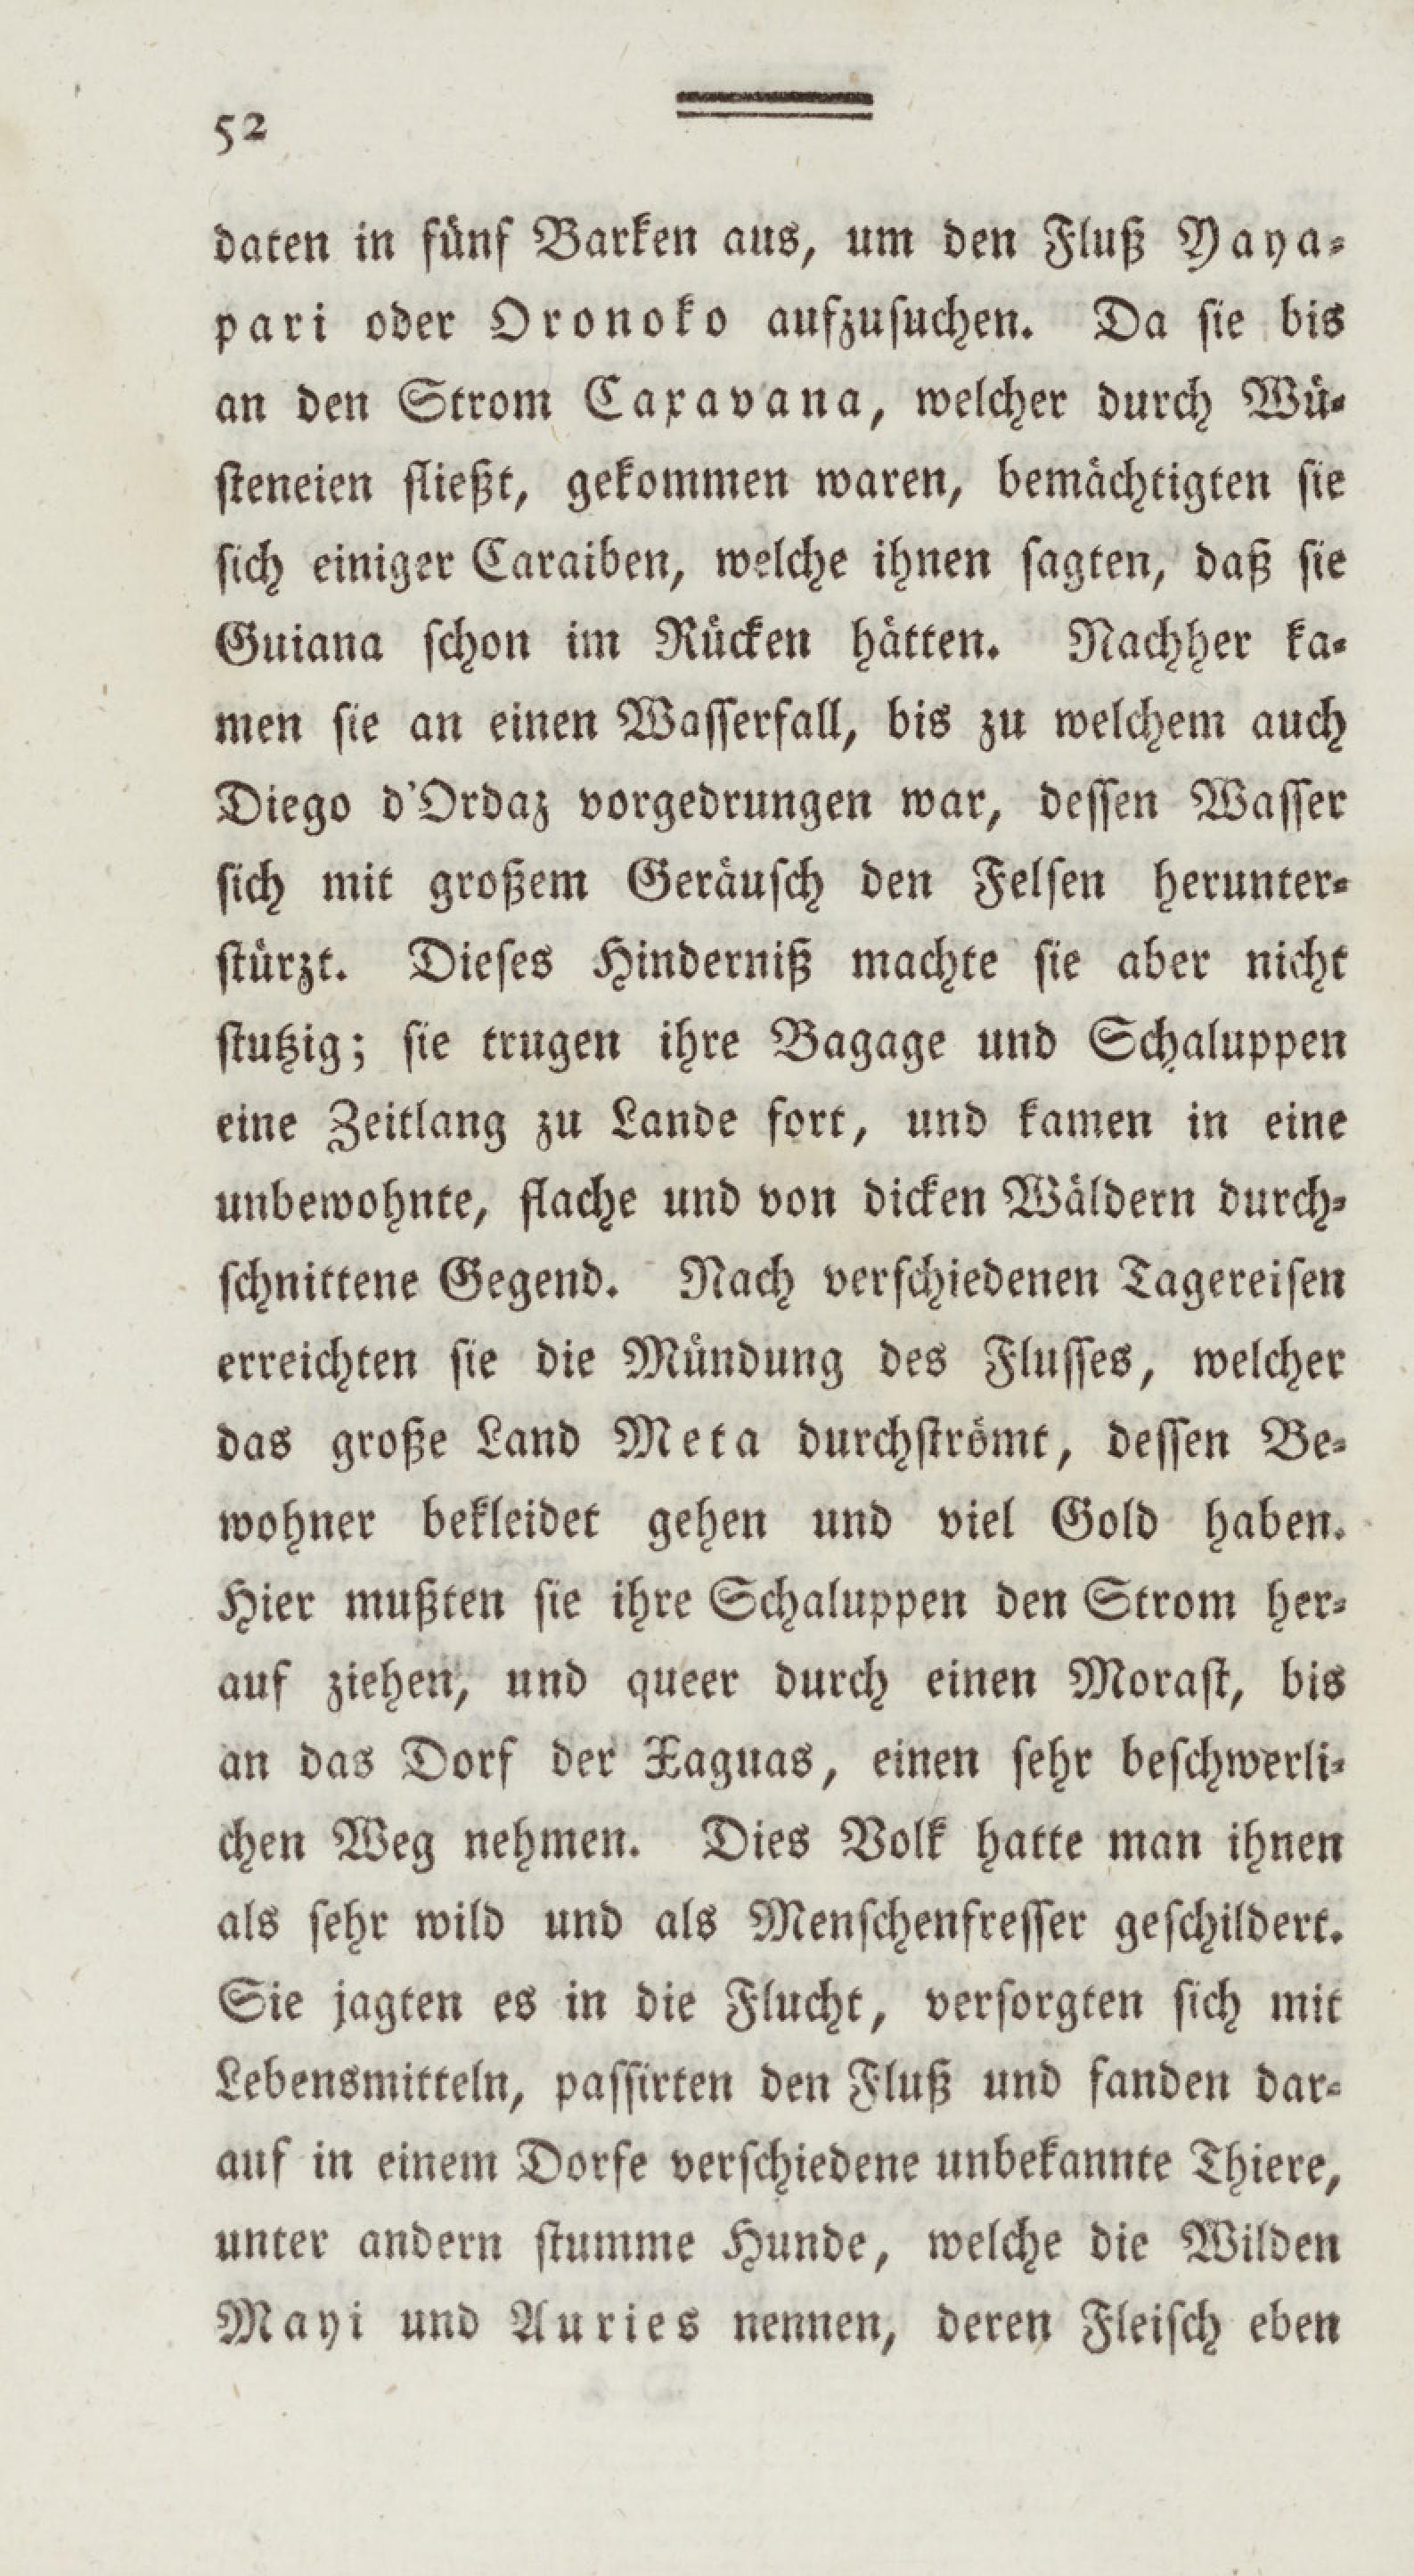 52
daten in fünf Barken aus, um den Fluß Yaya-
pari oder Oronoko aufzusuchen. Da sie bis
an den Strom Caxavana, welcher durch Wü-
steneien fließt, gekommen waren, bemächtigten sie
sich einiger Caraiben, welche ihnen sagten, daß sie
Guiana schon im Rücken hätten. Nachher ka-
men sie an einen Wasserfall, bis zu welchem auch
Diego d'Ordaz vorgedrungen war, dessen Wasser
sich mit großem Geräusch den Felsen herunter-
stürzt. Dieses Hinderniß machte sie aber nicht
stutzig; sie trugen ihre Bagage und Schaluppen
eine Zeitlang zu Lande fort, und kamen in eine
unbewohnte, flache und von dicken Wäldern durch-
schnittene Gegend. Nach verschiedenen Tagereisen
erreichten sie die Mündung des Flusses, welcher
das große Land Meta durchströmt, dessen Be-
wohner bekleidet gehen und viel Gold haben.
Hier mußten sie ihre Schaluppen den Strom her-
auf ziehen, und queer durch einen Morast, bis
an das Dorf der Xaguas, einen sehr beschwerli-
chen Weg nehmen. Dies Volk hatte man ihnen
als sehr wild und als Menschenfresser geschildert.
Sie jagten es in die Flucht, versorgten sich mit
Lebensmitteln, passirten den Fluß und fanden dar-
auf in einem Dorfe verschiedene unbekannte Thiere,
unter andern stumme Hunde, welche die Wilden
Mayi und Auries nennen, deren Fleisch eben